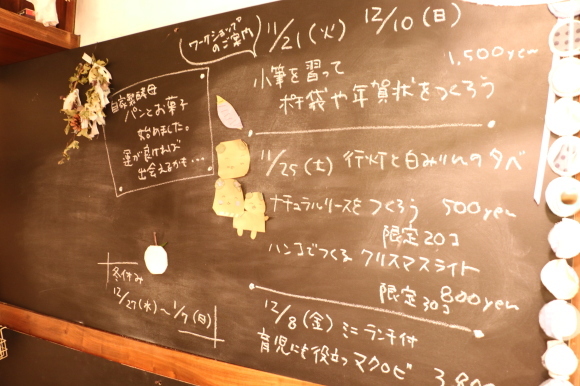 ワークショップ
のご案内
11/21(火) 12/10(日)
1,500yen
小筆を習って
ポチ袋や年賀状をつくろう
11/25(土) 行灯と白みりんの夕べ
ナチュラルリースをつくろう 500yen
限定20コ
ハンコでつくる クリスマスライト
800yen
限定30コ
12/8(金) ミニランチ付
育児にも役立つマクロビ
自家製酵母
パンとお菓子
始めました。
運が良ければ
出会えるかも・・・
冬休み
12/27(水)〜1/7(日)